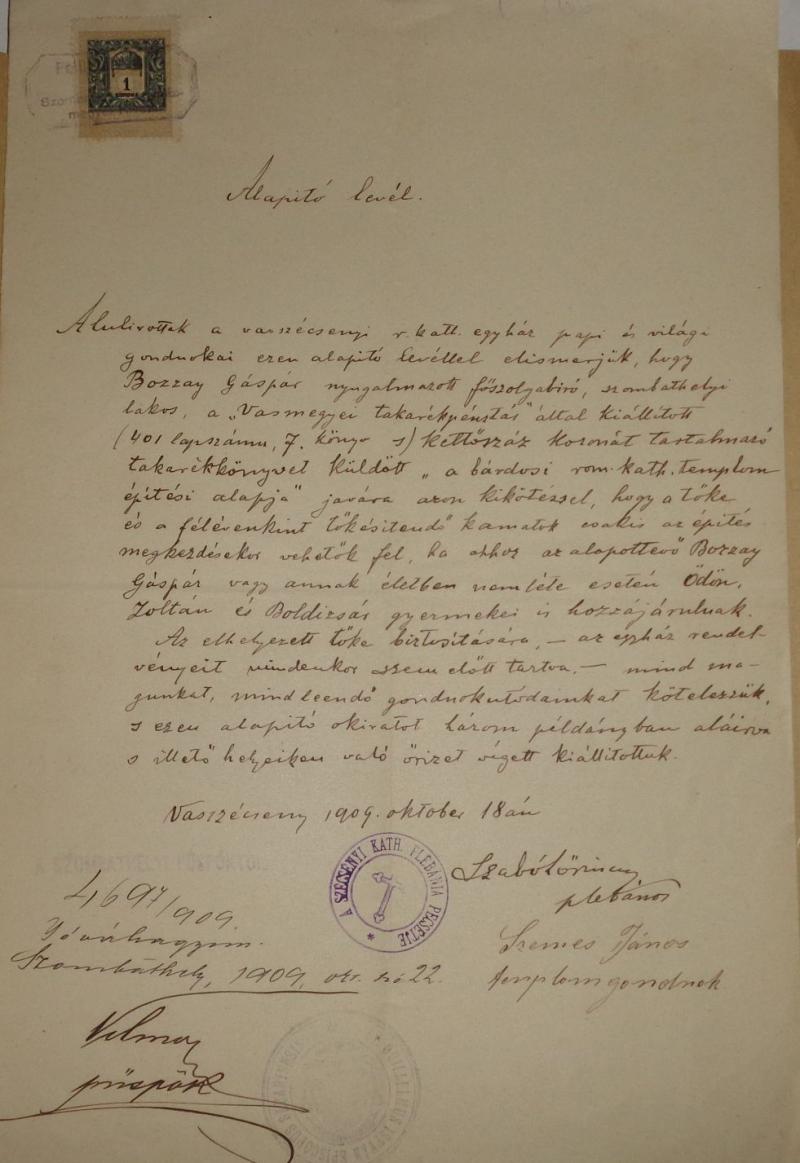 1
Alapitó levél.
Alulirottak a vasszécsenyi r. kath. egyház papi és világi
gondnokai ezen alapitó levéllel elismerjük, hogy
Bozzay Gáspár nyugalmazott főszolgabiró, szombathelyi
lakos, a „Vasmegyei takarékpénztár" által kiállitott
(401 lapszámu, 7. könyv s) kettőszáz koronát tartalmazó
takarékkönyvet küldött „a bárdosi rom. kath. templom
épitési alapja" javára azon kikötéssel, hogy a tőke
és a félévenkint tőkésitendő kamatok csakis az épités
megkezdésekor vehetők fel, ha ahhoz az alapottevő Bozzay
Gáspár vagy annak életben nemléte esetén Ödön,
Zoltán és Boldizsár gyermekei is hozzájárulnak.
Az elhelyezett tőke biztositására, – az egyház rendel-
vényeit mindenkor szem előtt tartva, – mind ma-
gunkat, mind leendő gondnokutódainkat kötelezzük,
s ezen alapitó okiratot három példányban aláirva
s illető helyeiken való őrizet végett kiállitottuk.
Vasszécseny 1909. október 18án
A SZÉCSENYI KATH. PLEBANIA PECSETJE
plebános
Szemes János
templomgondnok
4697/909.
Jóváhagyom.
Szombathely, 1909. okt. hó 22.
Vilmos
püspök